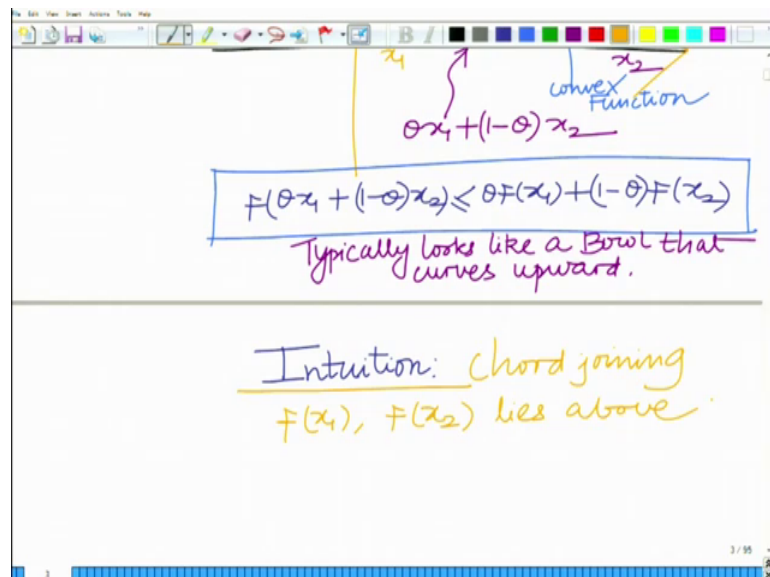 File Edit View Insert Actions Tools Help
B I
x₁
x₂
convex
Function
θx₁+(1-θ)x₂
F(θx₁+(1-θ)x₂) ≤ θF(x₁)+(1-θ)F(x₂)
Typically looks like a Bowl that
curves upward.
Intuition: Chord joining
F(x₁), F(x₂) lies above
3 / 95
3